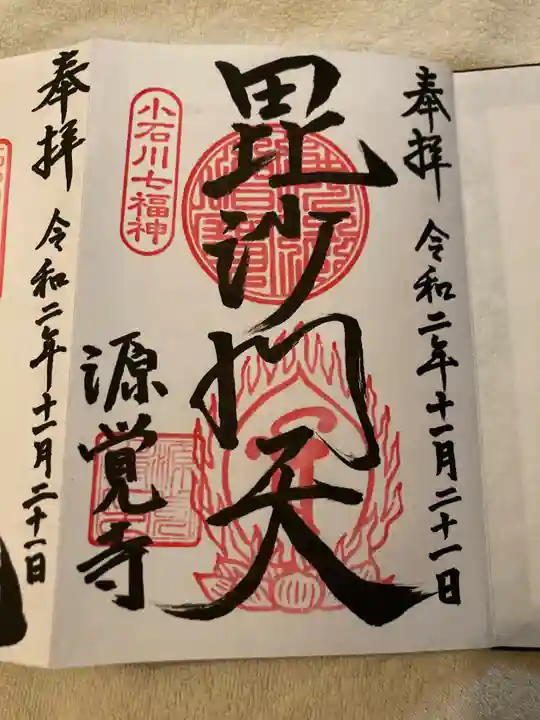 奉拝
令和二年十一月二十一日
毘沙門天
小石川七福神
源覚寺
奉拝
令和二年十一月二十一日